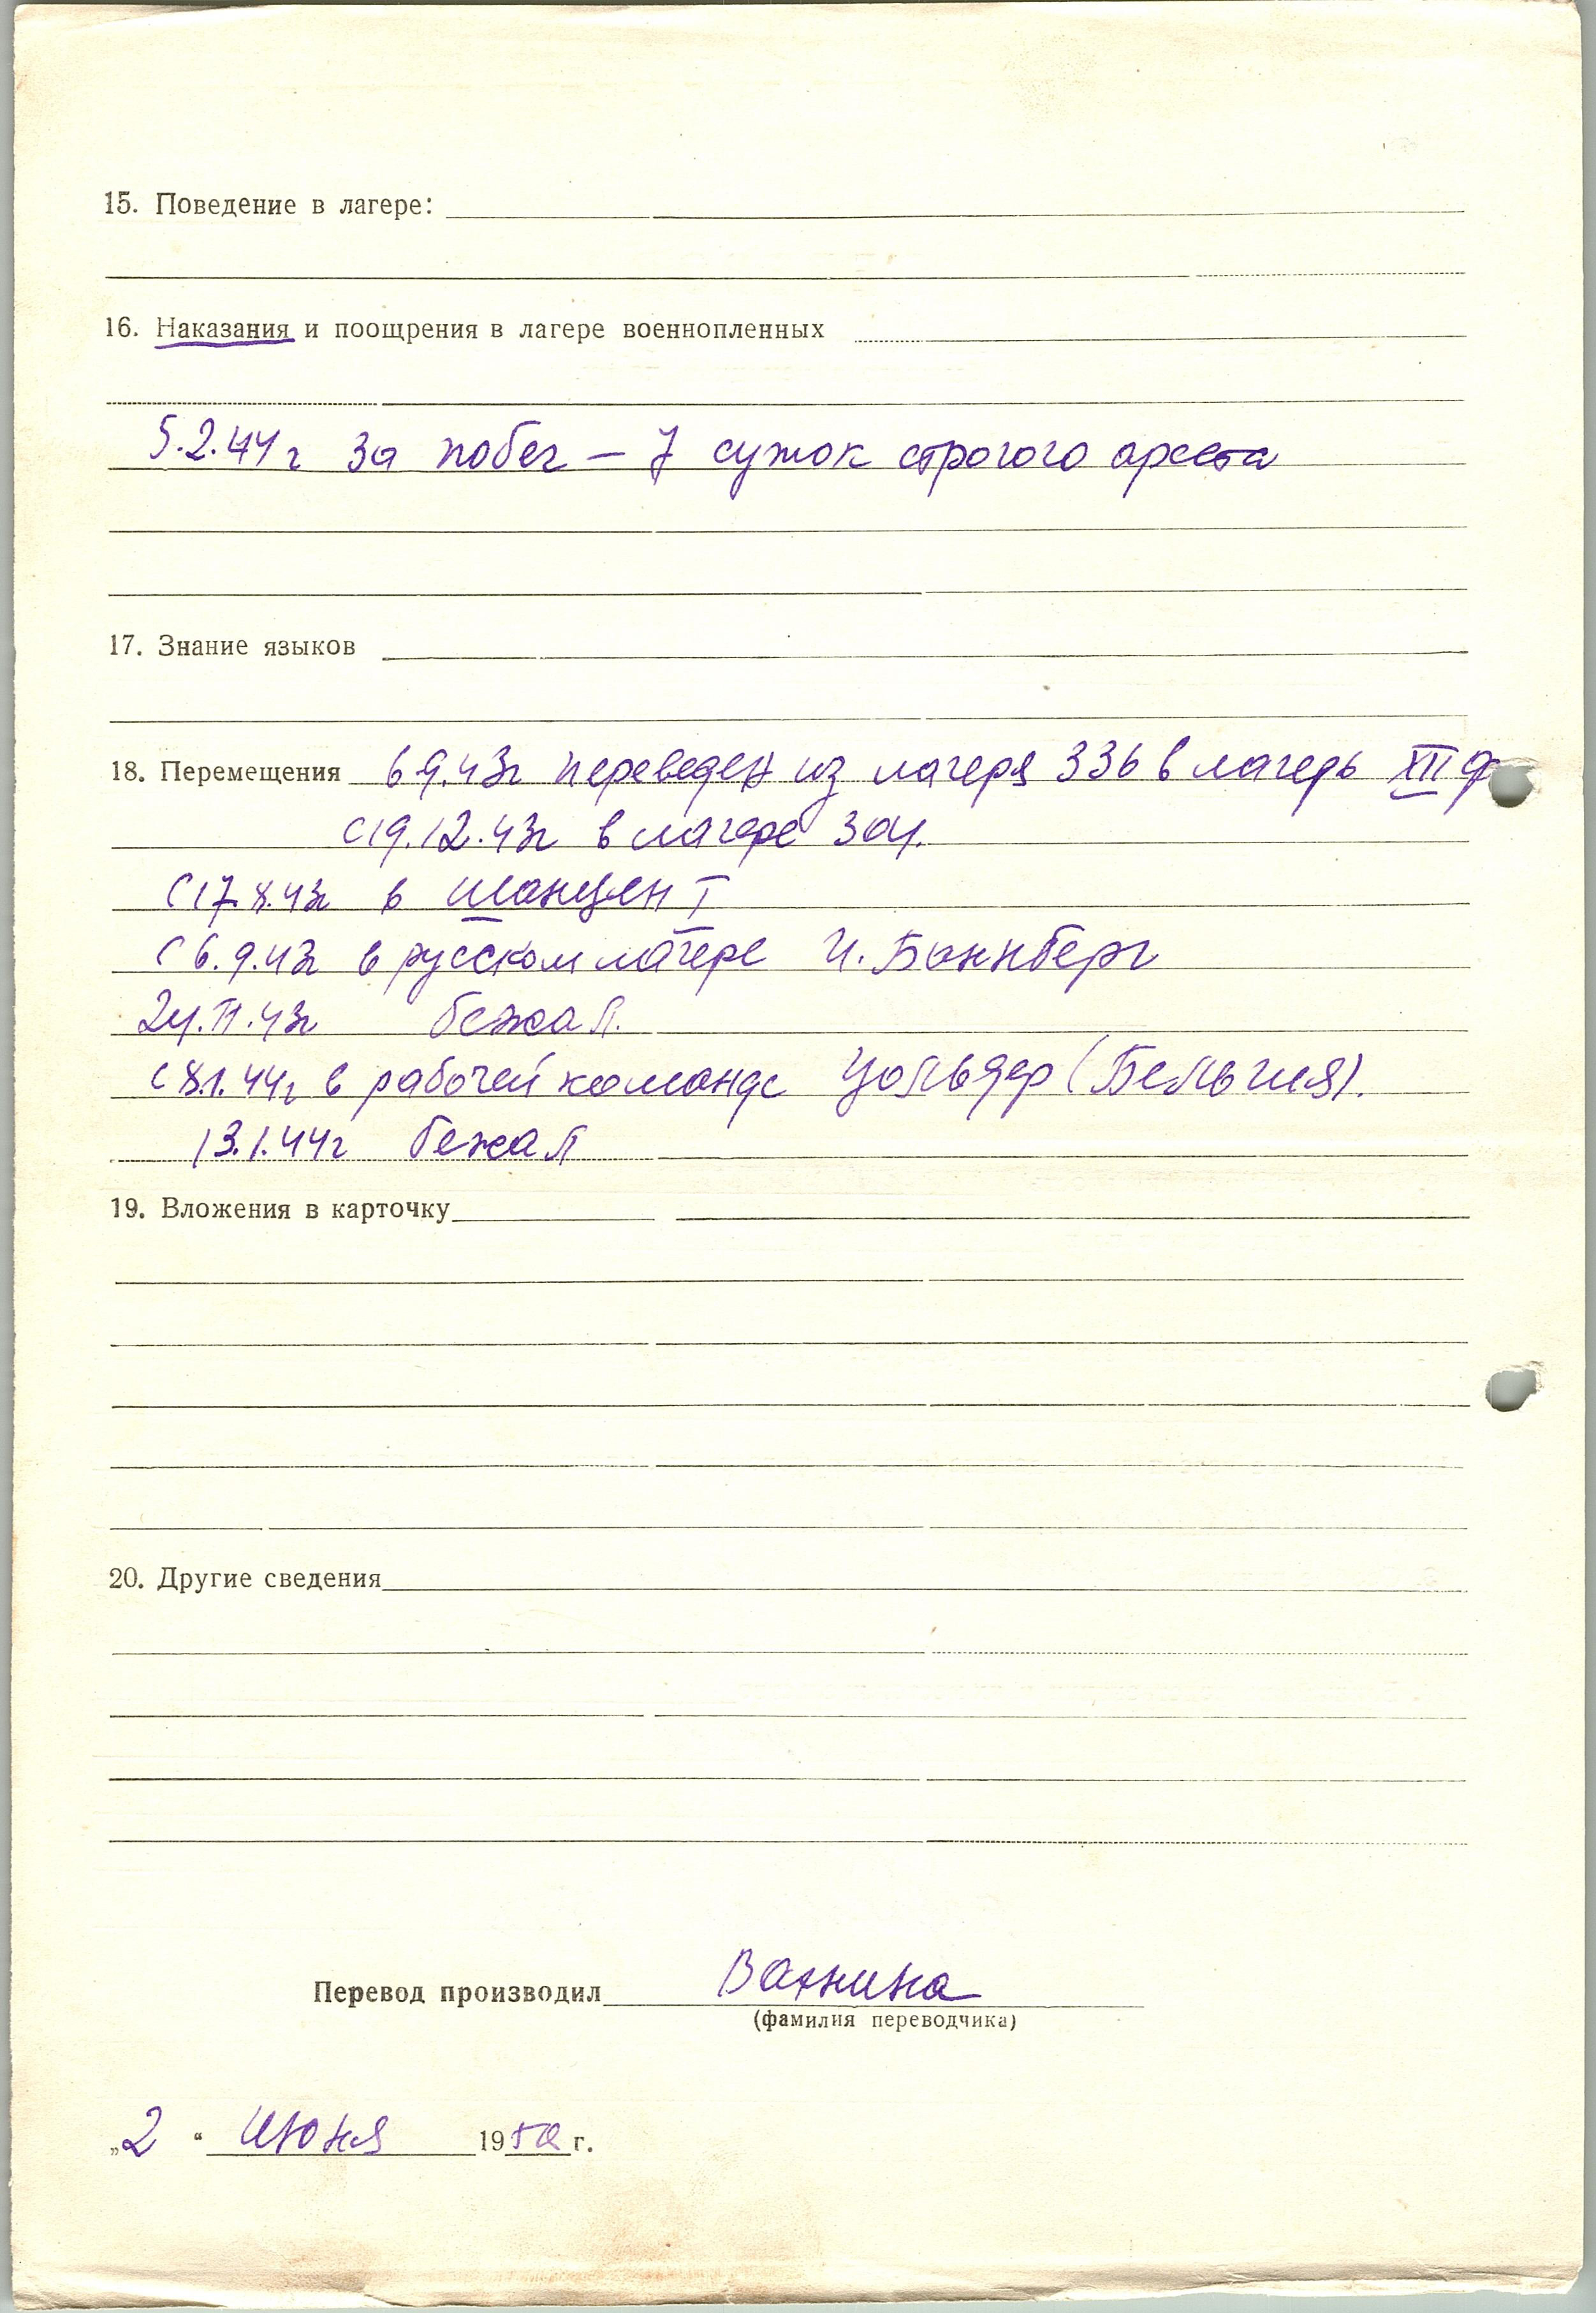 15. Поведение в лагере:
16. Наказания и поощрения в лагере военнопленных
5.2.44 г за побег — 7 суток строгого ареста
17. Знание языков
18. Перемещения 6.9.43г переведен из лагеря 336 в лагерь XII Ф
с 19.12.43г в лагере 304.
с 17.X.43г в
с 6.9.43г в русском лагере Н. Баннберг
24.11.43г бежал.
с 8.1.44г в рабочей команде Цольдер (Бельгия).
13.1.44г бежал
19. Вложения в карточку
20. Другие сведения
Перевод производил Вахнина
(фамилия переводчика)
„2“ июня 1950 г.